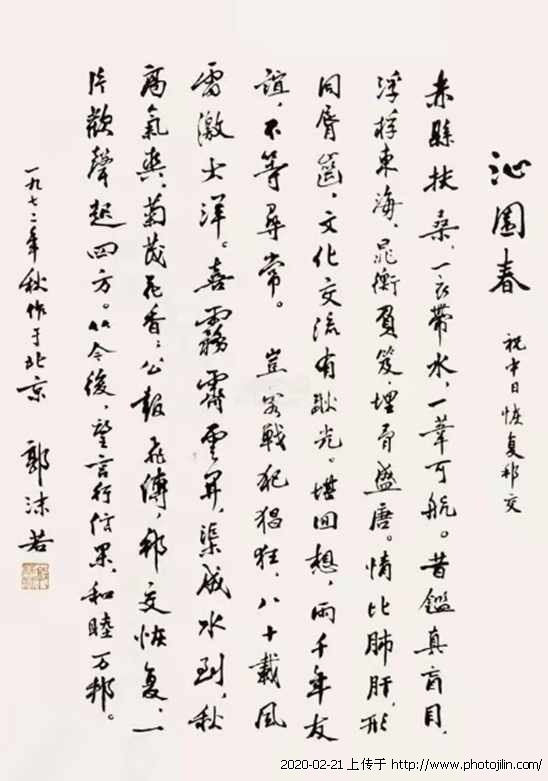 沁園春
祝中日恢复邦交
赤縣扶桑,一衣帶水,一葦可航。昔鑑真盲目,
浮桴東海,晁衡負笈,埋骨盛唐。情比肺肝,形
同脣齒,文化交流有耿光。堪回想,兩千年友
誼,不等尋常。 豈容戰犯猖狂,八十載風
雷激大洋。喜霧霽雲開,渠成水到,秋
高氣爽,菊茂花香,公報飛傳,邦交恢复,一
片歡聲起四方。从今後,望言行信果,和睦万邦。
一九七二年秋作于北京 郭沫若
2020-02-21 上传于 http://www.photojilin.com/